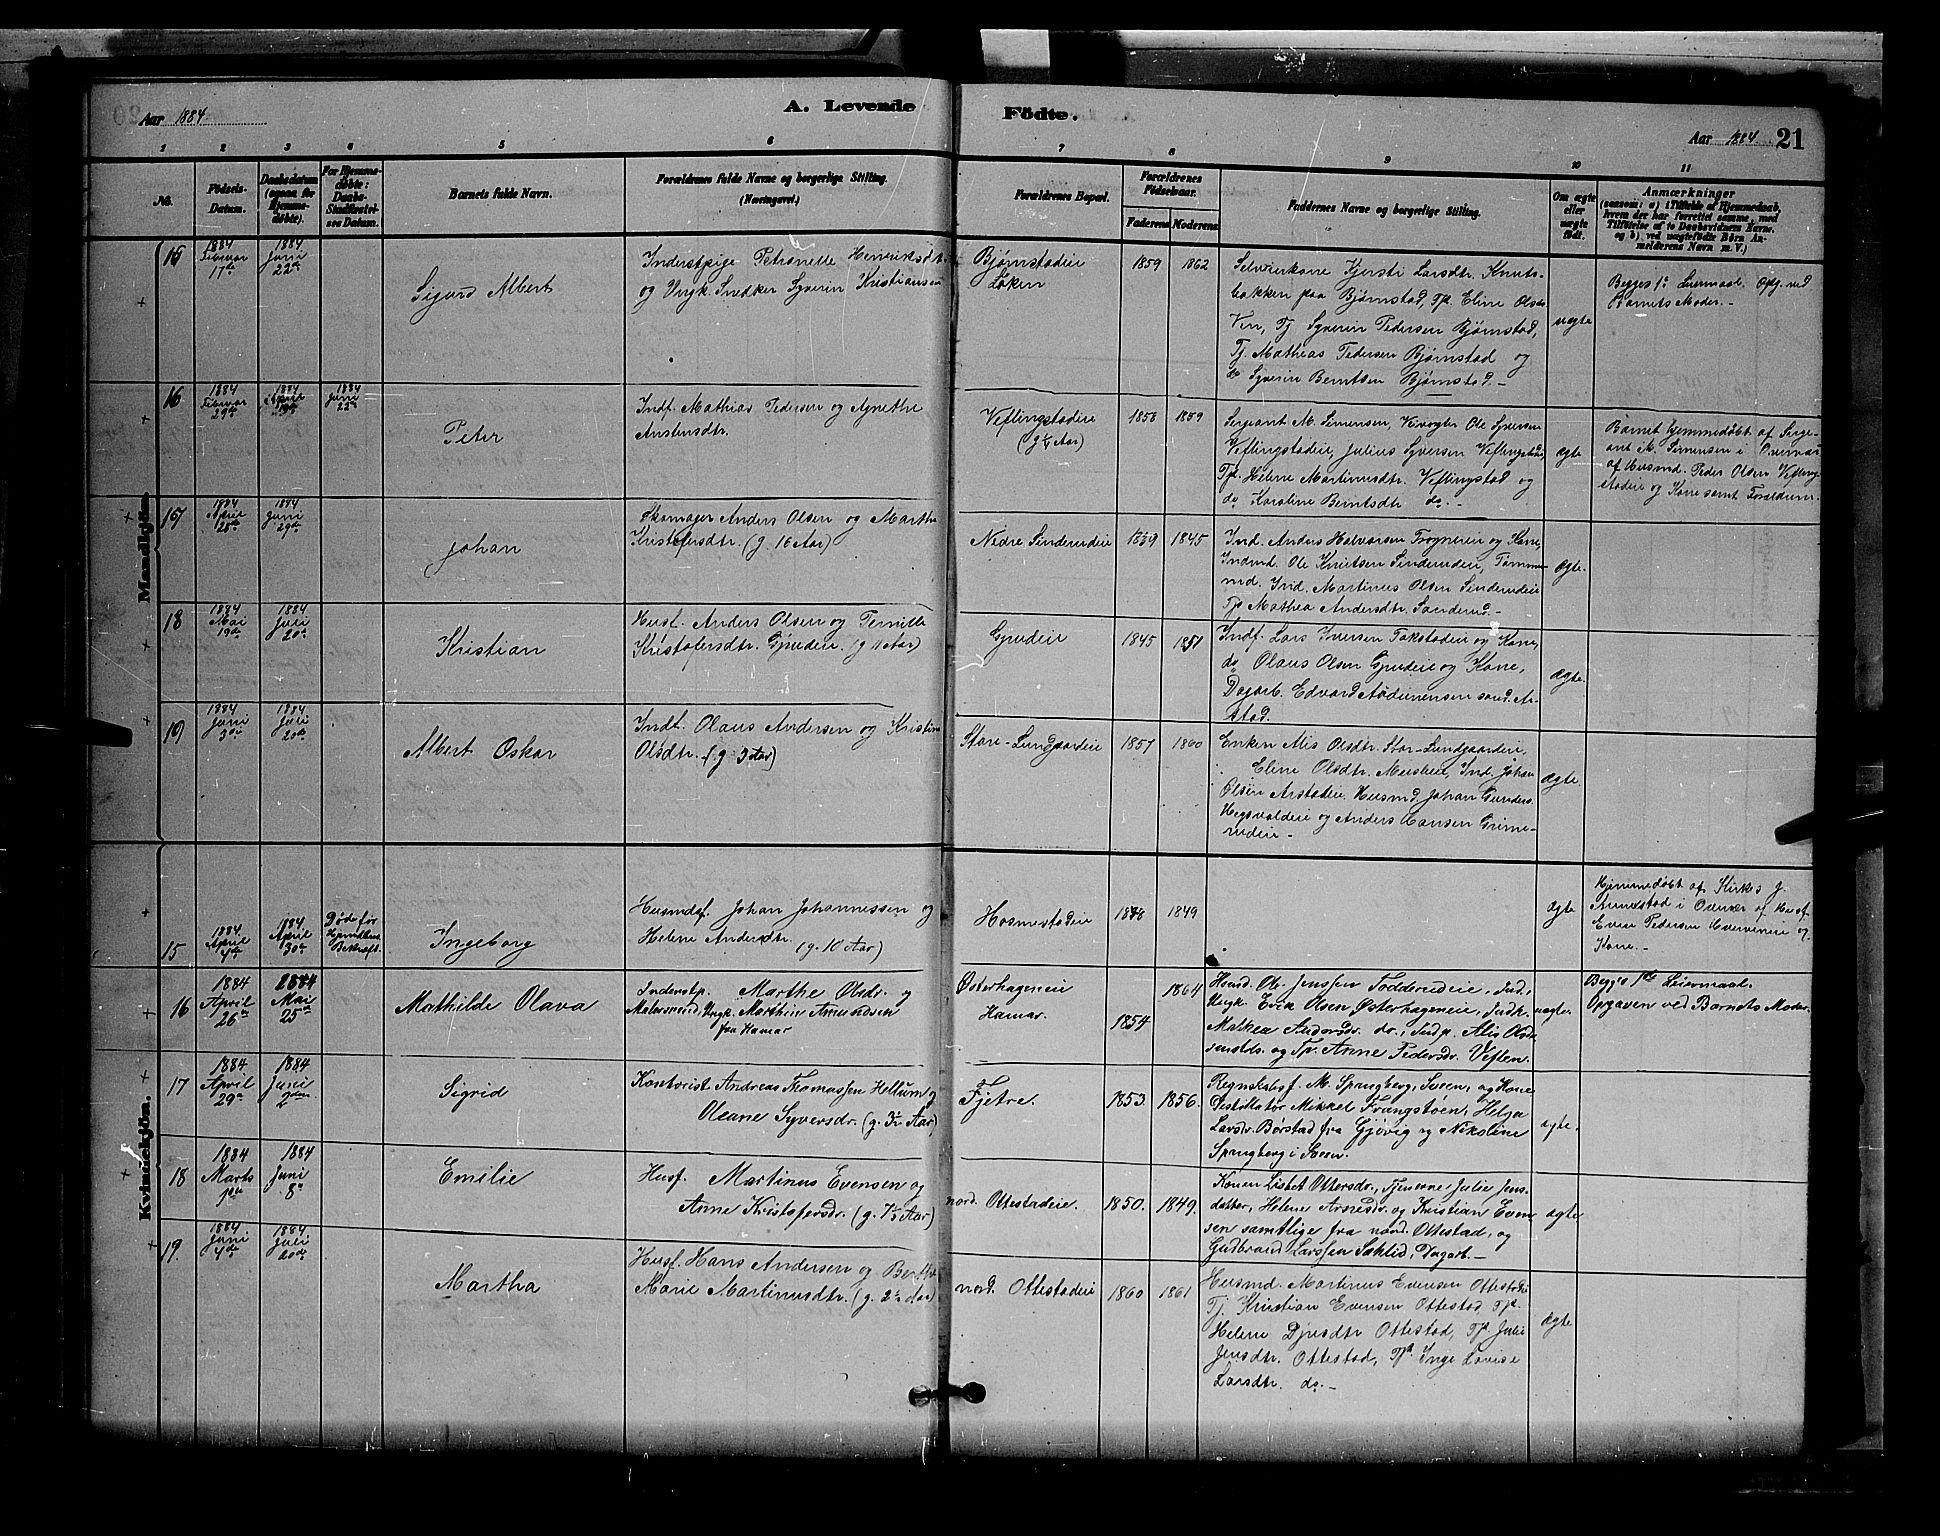 Aar 1884
A. Levende
Födte.
Aar 1884.
21
1 2 3 4 5 6 7 8 9 10 11
No.
Födsels-
Datum.
Daabsdatum
(ogsaa for
Hjemme-
döbte).
For Hjemme-
døbte:
Daabs-
Stadfæstel-
ses Datum.
Barnets fulde Navn.
Forældrenes fulde Navne og borgerlige Stilling.
(Næringsvei.)
Forældrenes Bopæl.
Forældrenes
Fødselsaar.
Faderens
Moderens
Faddernes Navne og borgerlige Stilling.
Om ægte
eller
uægte
født.
Anmærkninger
(saasom: a) i Tilfælde af Hjemmedaab,
hvem der har forrettet samme, med
Tilföielse af to Daabsvidners Navne.
og b) ved uægtefödte Børn An-
melderens Navn m. V.)
Mandkjön.
15
1884
Februar
17de
1884
Juni
22de
Sigurd Albert
Inderstpige Petronelle Henriksdtr.
og Ungk. Snedker Syverin Kristiansen
Bjørnstadeie
Løken
1859
1862
Selveierkone Kjersti Larsdtr. Knuts-
bakken paa Bjørnstad, Tp. Eline Olsdtr.
Ven, Tj Syverin Pedersen Bjørnstad,
Tj. Mathias Pedersen Bjørnstad og
do Syverin Berntsen Bjørnstad. -
uægte
Begges 1ste Leiermaal. Opg. ved
Barnets Moder. -
16
1884
Februar
29de
1884
April
1884
Juni
22de
Peter
Indf. Mathias Pedersen og Agnethe
Anstensdtr.
Veflingstadeie
(g ½ Aar)
1858
1859
Sergeant M. Simensen, Ole Syversen
Veflingstadeie, Julius Syversen Veflingstad,
Tp. Helene Martinusdtr. Veflingstad og
do Karoline Berntsdtr. do. -
ægte
Barnet hjemmedøbt af Serge-
ant M. Simensen i Overvær
af Husmd. Peder Olsen Vefling-
stadeie og Kone samt Forældrene.
17
1884
April
25de
1884
Juni
29de
Johan
Skomager Anders Olsen og Martha
Kristofersdtr. (g. 16 Aar)
Nedre Sinderudeie
1839
1845
Ind. Anders Halvorsen Frogneeie og Kone,
Indmd. Ole Knutsen Sinderudeie, Tømm-
md. Ind. Martinus Olsen Sinderudeie
Tp Mathea Andersdtr. Sanderud. -
ægte.
18
1884
Mai
19de
1884
Juli
20de
Kristian
Husf. Anders Olsen og Pernille
Kristofersdtr. Gjrudeie. (g 11 Aar)
Gjrudeie
1845
1851
Indf. Lars Iversen Fokstadeie og Kone,
do Olaus Olsen Gjrudeie og Kone,
Dagarb. Edvard
stad.
ægte.
19
1884
Juni
3die
1884
Juli
20de
Albert Oskar
Indf. Olaus Andersen og Kristine
Olsdtr. (g. 3 Aar)
Store-Lundgaardeie
1857
1860
Enken Alis Olsdtr. Stor-Lundgaardeie,
Eline Olsdtr. Ind. Johan
Olsen Arstadeie. Husmd. Johan Gunders.
Hegsvoldeie og Anders Hansen Grime-
rudeie -
ægte
Kvindekjön.
15
1884
April
4de
1884.
April
30te
Døde før
Bekræft.
Ingeborg
Husmdsf. Johan Johannessen og
Helene Andersdtr. (g. 10 Aar)
Hosmestadeie
1848
1849
ægte
Hjemmedøbt af Kirkes. J.
Arnestad i Overvær af Husf.
Even Pedersen og
Kone. -
16
1884
April
26de
1884
Mai
25de
Mathilde Olava
Inderstp. Marthe Olsdr. og
Malersvend, Ungk. Marthin Amundsen
fra Hamar
Østerhageneie
Hamar.
1854
1864
Husmd. Ole Jenssen Fodderudeie, Ind.,
Ungk. Erik Olsen Østerhageneie, Indk.
Mathea Andersdr. do., Indp. Alis Olsdr.
og Tp. Anne Pedersdr. Veflen.
uægte.
Begges 1ste Leiermaal.
Opgaven ved Barnets Moder.
17
1884
April
29de
1884
Juni
2den
Sigrid
Kontorist Andreas Thomassen Hellum og
Oleane Syversdr. (g. 3½ Aar)
Fjetre.
1853.
1856.
Regnskabsf. M. Sprugberg, Sveen, og Kone
Destillatør Mikkel Frangstøen, Helga
Larsdr. Børstad fra Gjøvig og Nikoline
Sprugberg i Sveen.
ægte.
18
1884
Marts
1ste
1884
Juni
8de
Emilie
Husf. Martinus Evensen og
Anne Kristofersdr. (g. 7½ Aar)
nord. Ottestadeie.
1850.
1849.
Konen Lisbet Ottersdr., Tjenerne Julie Jens-
datter, Helene Arnesdr. og Kristian Even-
sen samtlige fra nord. Ottestad, og
Gudbrand Larssen Sahlid, Dagarb. -
ægte
19.
1884
Juni
4de
1884.
Juli
20de
Martha
Husf. Hans Andersen og Berthe
Marie Martinusdtr. (g. 2½ Aar)
nord. Ottestadeie
1860
1861
Husmd. Martinus Evensen Ottestadeie
Tj. Kristian Evensen Ottestad, Tp.
Helene Ottestad, Tp. Julie
Jensdtr. Ottestad, Tp. Inge Lovise
Larsdtr. do. -
ægte